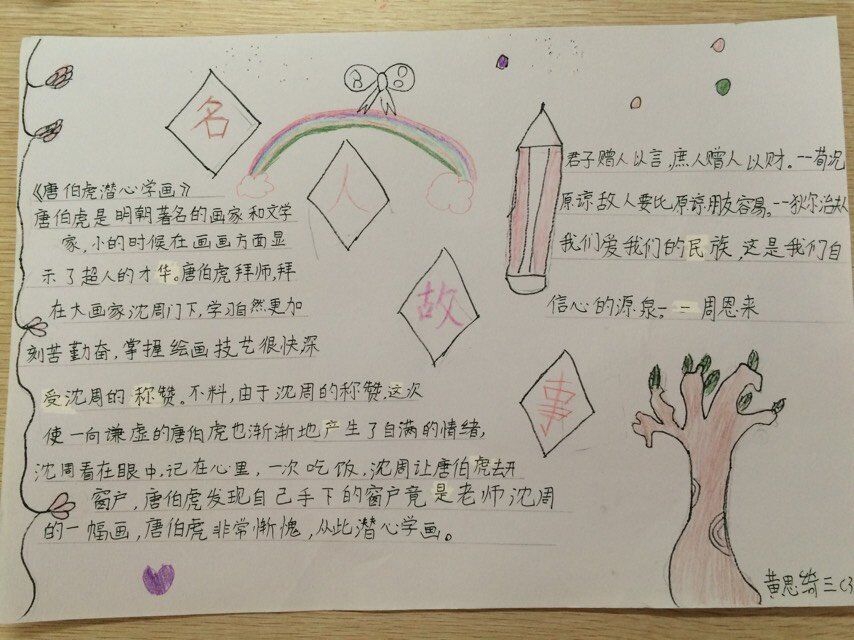 名
人
故
事
《唐伯虎潜心学画》
唐伯虎是明朝著名的画家和文学
家,小的时候在画画方面显
示了超人的才华。唐伯虎拜师,拜
在大画家沈周门下,学习自然更加
刻苦勤奋,掌握绘画技艺很快深
受沈周的称赞。不料,由于沈周的称赞,这次
使一向谦虚的唐伯虎也渐渐地产生了自满的情绪,
沈周看在眼中,记在心里,一次吃饭,沈周让唐伯虎去开
窗户,唐伯虎发现自己手下的窗户竟是老师沈周
的一幅画,唐伯虎非常惭愧,从此潜心学画。
君子赠人以言,庶人赠人以财。--荀况
原谅敌人要比原谅朋友容易。--狄尔治夫人
我们爱我们的民族,这是我们自
信心的源泉。--周恩来
黄思绮三(3